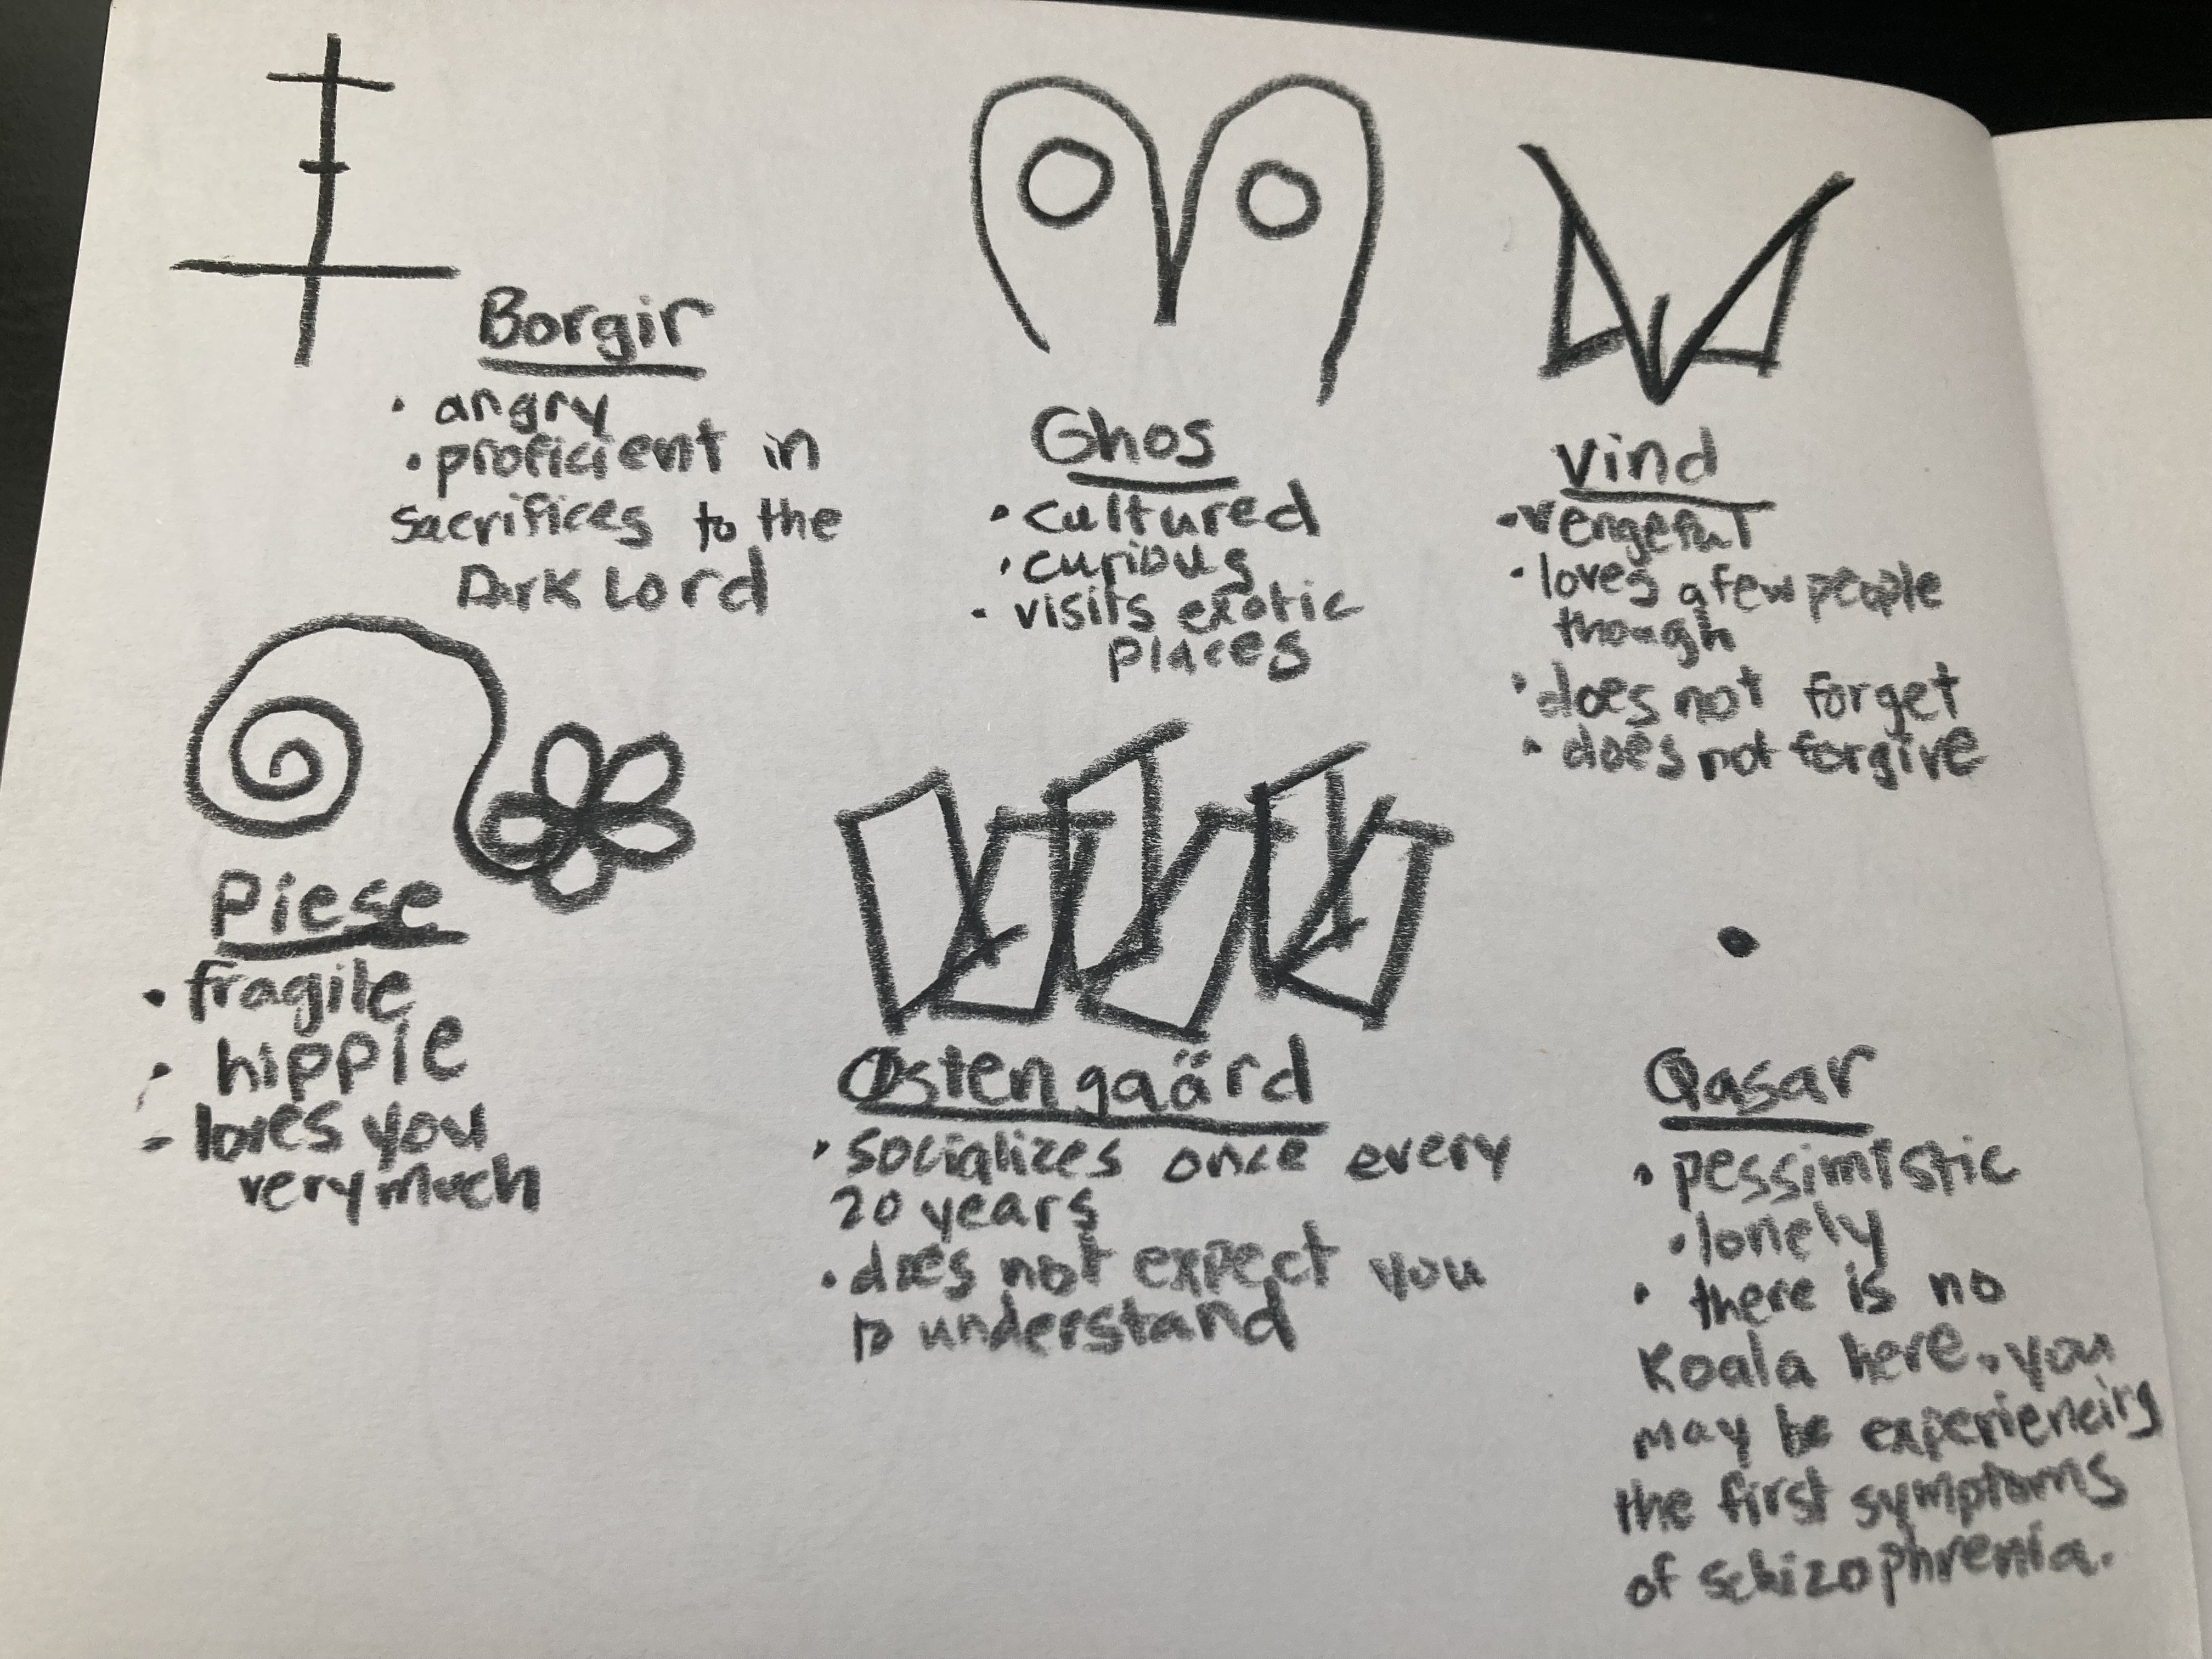 Borgir
• angry
• proficient in
sacrifices to the
Dark Lord
Ghos
• cultured
• curious
• visits exotic
places
Vind
• vengeful
• loves a few people
though
• does not forget
• does not forgive
Piese
• fragile
• hippie
• loves you
very much
Ostengaärd
• socializes once every
20 years
• does not expect you
to understand
Qasar
• pessimistic
• lonely
• there is no
Koala here. You
may be experiencing
the first symptoms
of schizophrenia.